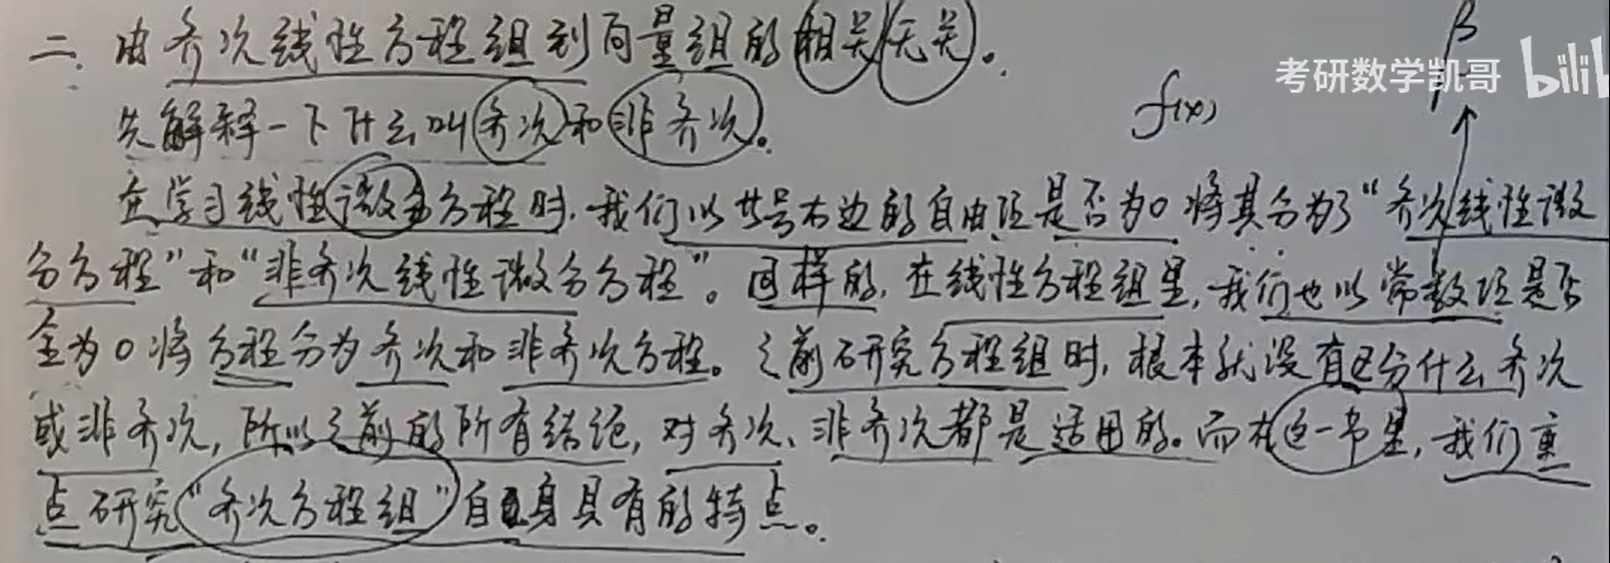 二、由齐次线性方程组到向量组的相关/无关。
β
考研数学凯哥 bilib
先解释一下什么叫齐次和非齐次。
f(x)
在学习线性微分方程时,我们以等号右边的自由项是否为0将其分为了“齐次线性微
分方程”和“非齐次线性微分方程”。同样的,在线性方程组里,我们也以常数项是否
全为0将方程分为齐次和非齐次方程。之前研究方程组时,根本就没有区分什么齐次
或非齐次,所以之前的所有结论,对齐次、非齐次都是适用的。而在这一节里,我们重
点研究“齐次方程组”自身具有的特点。